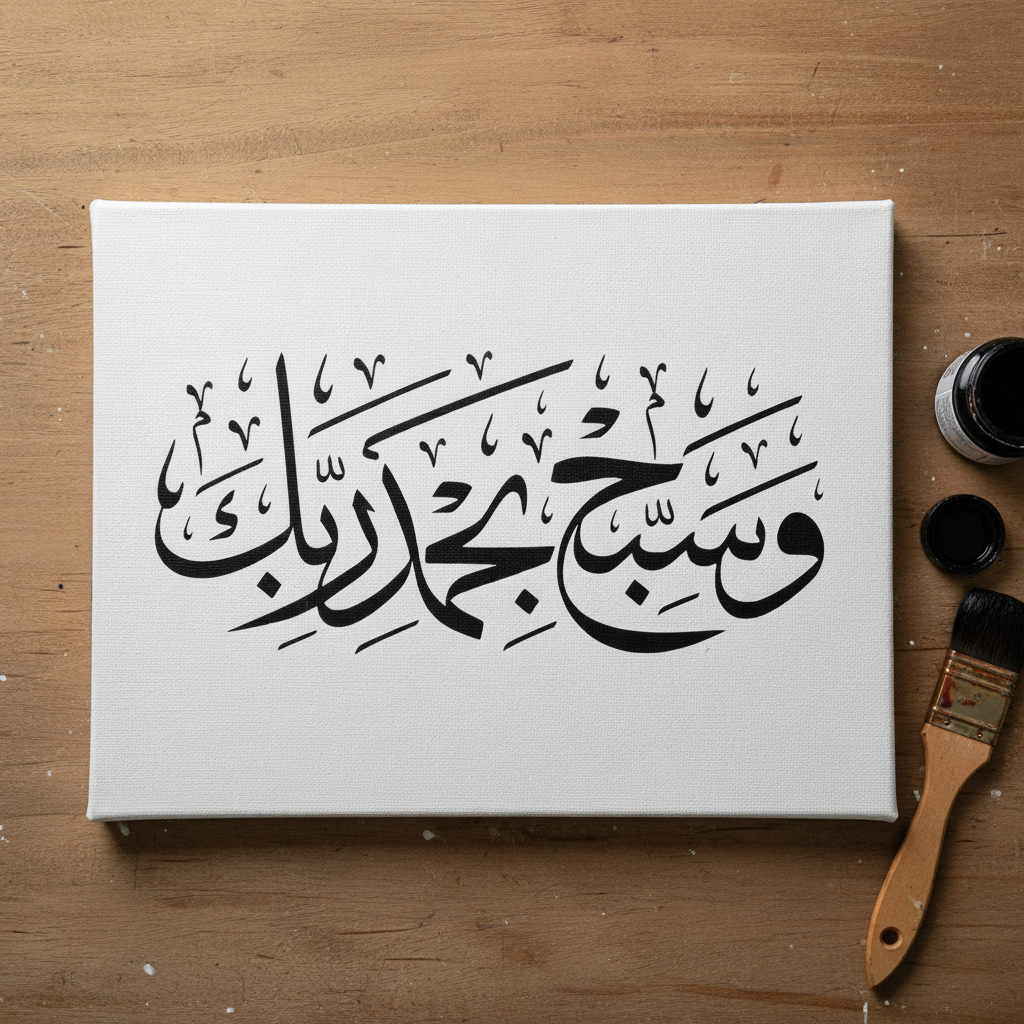 وسبّح بحمد ربّك